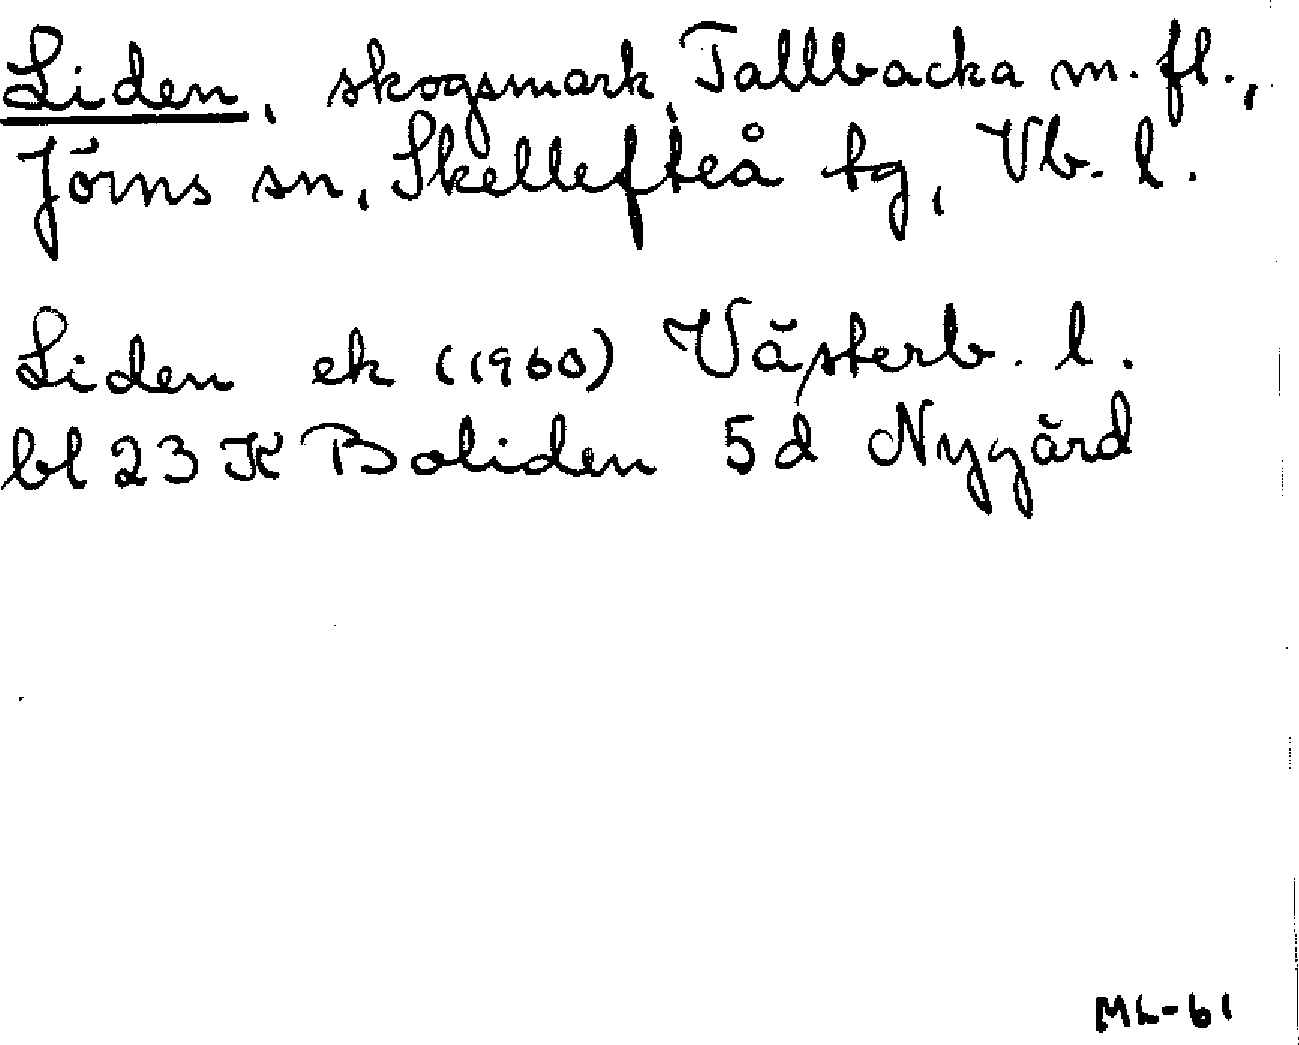 Liden, skogsmark, Tallbacka m. fl.,
Jörns sn, Skellefteå tg, Vb. l.
Liden ek (1960) Västerb. l.
bl 23 K Boliden 5d Nygård
ML-61